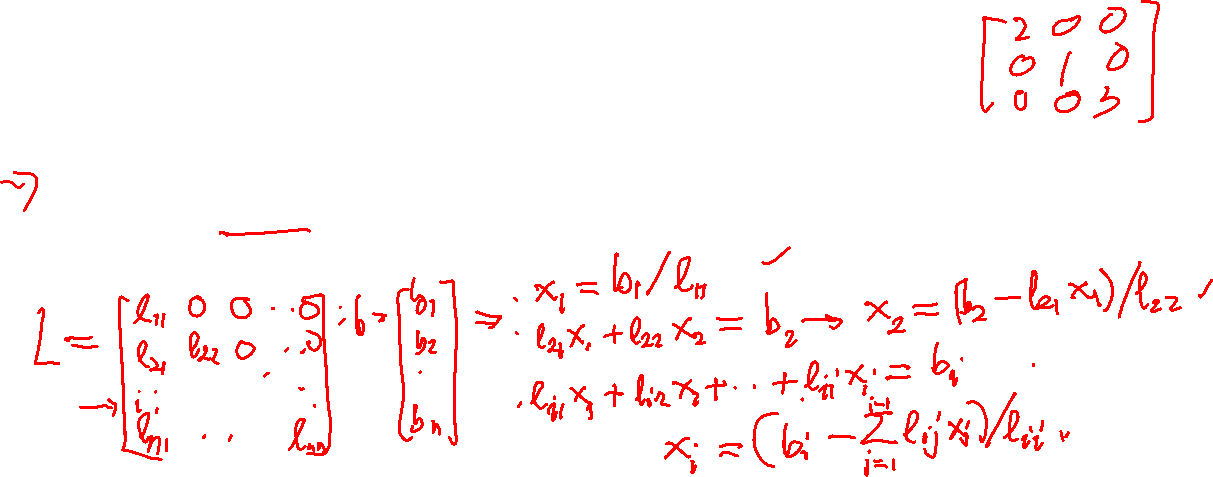 [2 0 0
0 1 0
0 0 3]
→
L = [l₁₁ 0 0 ·· 0
l₂₁ l₂₂ 0 ·· 0
⋮
lₙ₁ ·· lₙₙ] ; b = [b₁
b₂
·
bₙ] ⇒
· x₁ = b₁/l₁₁ ✓
· l₂₁x₁ + l₂₂x₂ = b₂ → x₂ = (b₂ − l₂₁x₁)/l₂₂ ✓
· lᵢ₁x₁ + lᵢ₂x₂ + ·· + lᵢᵢxᵢ = bᵢ
xᵢ = (bᵢ − ∑_{j=1}^{i-1} lᵢⱼxⱼ)/lᵢᵢ